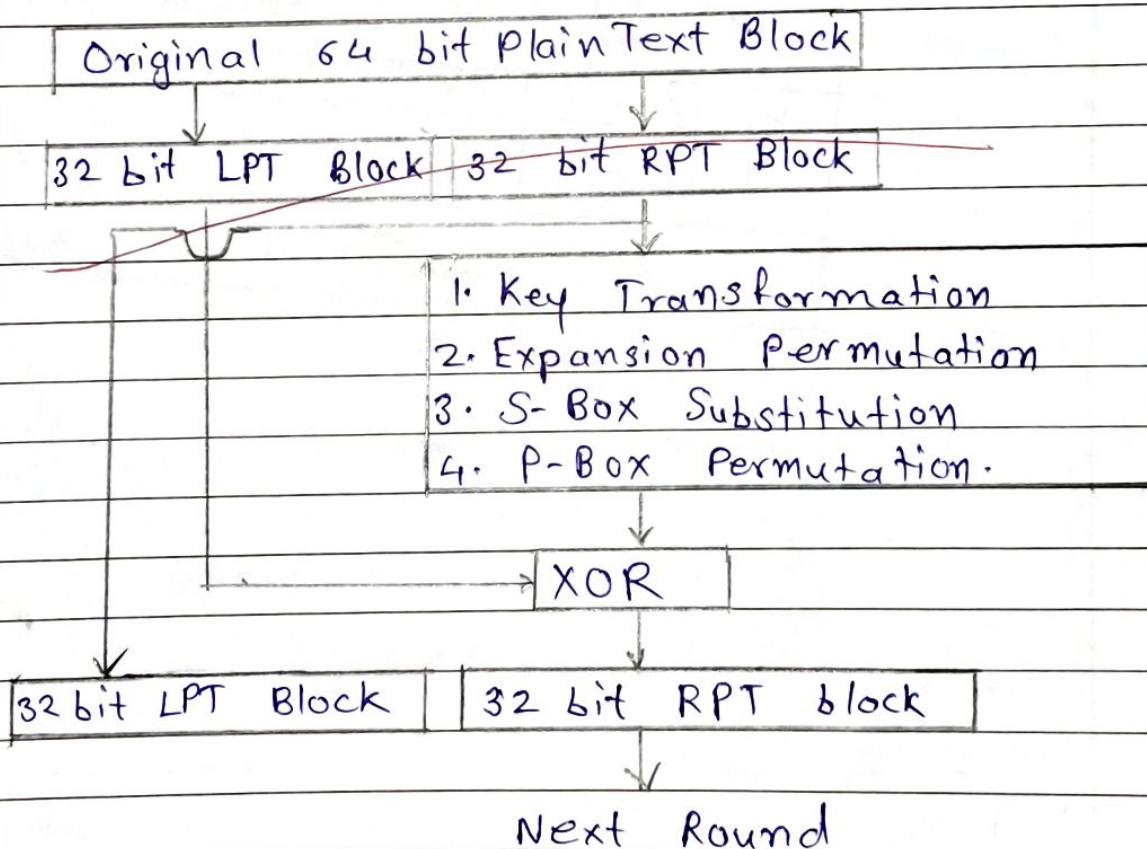 Original 64 bit Plain Text Block
32 bit LPT Block 32 bit RPT Block
1. Key Transformation
2. Expansion Permutation
3. S-Box Substitution
4. P-Box Permutation.
XOR
32 bit LPT Block 32 bit RPT block
Next Round